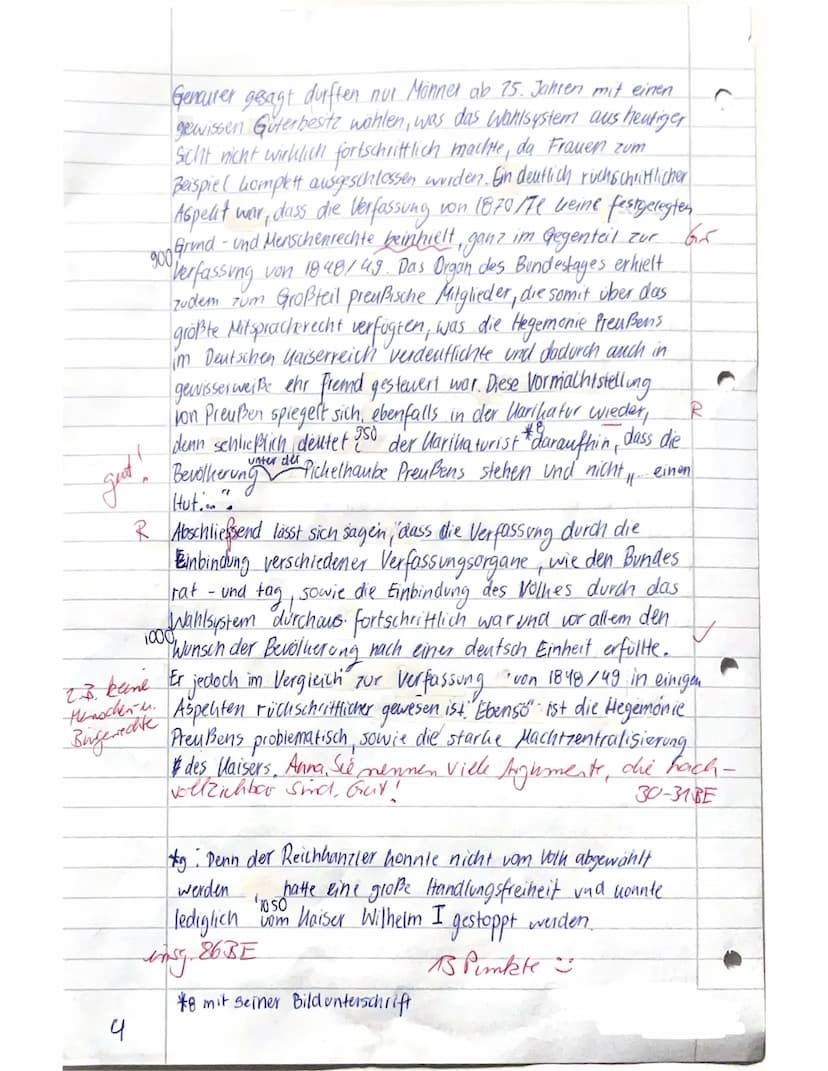 Genauer gesagt durften nur Männer ab 25. Jahren mit einen
gewissen Güterbesitz wählen, was das Wahlsystem aus heutiger
Sicht nicht wirklich fortschrittlich machte, da Frauen zum
Beispiel komplett ausgeschlossen wurden. Ein deutlich rückschrittlicher
Aspekt war, dass die Verfassung von 1870/71 keine festgelegten
900 Grund- und Menschenrechte beinhielt, ganz im Gegenteil zur Gr
Verfassung von 1848/49. Das Organ des Bundestages erhielt
zudem zum Großteil preußische Mitglieder, die somit über das
größte Mitspracherecht verfügten, was die Hegemonie Preußens
im Deutschen Kaiserreich verdeutlichte und dadurch auch in
gewisserweiße ehr fremd gesteuert war. Diese Vormachtstellung
von Preußen spiegelt sich, ebenfalls in der Karikatur wieder, R
denn schließlich deutet 950 der Karikaturist *8 daraufhin, dass die
gut! Bevölkerung unter der Pickelhaube Preußens stehen und nicht „... einen
Hut...".
R Abschließend lässt sich sagen, dass die Verfassung durch die
Einbindung verschiedener Verfassungsorgane, wie den Bundes
rat - und tag, sowie die Einbindung des Volkes durch das
Wahlsystem durchaus fortschrittlich war und vor allem den
1000 Wunsch der Bevölkerung nach einer deutsch Einheit erfüllte. ✓
Er jedoch im Vergleich zur Verfassung von 1848/49 in einigen
z.B. keine
Menschen- u.
Bürgerrechte
Aspekten rückschrittlicher gewesen ist. Ebenso ist die Hegemonie
Preußens problematisch, sowie die starke Machtzentralisierung
des Kaisers. Anna, Sie nennen viele Argumente, die nach-
vollziehbar sind. Gut! 30-31 BE
*9: Denn der Reichkanzler konnte nicht vom Volk abgewählt
werden, hatte eine große Handlungsfreiheit und konnte
lediglich 1050 vom Kaiser Wilhelm I gestoppt werden.
insg. 86 BE 13 Punkte :)
*8 mit seiner Bildunterschrift
4